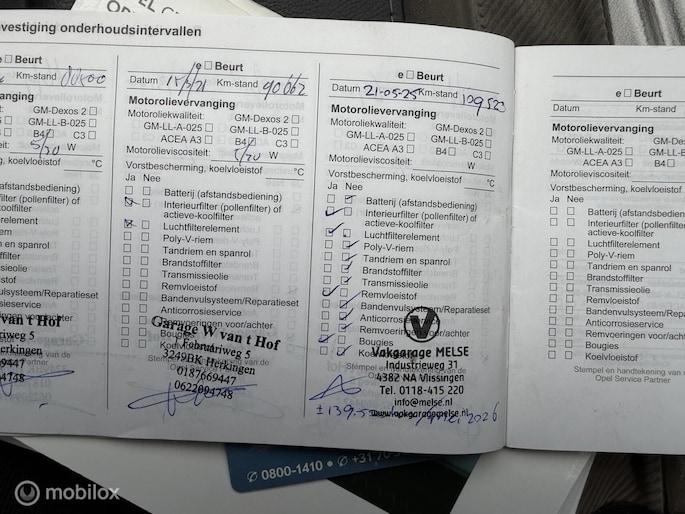 vestiging onderhoudsintervallen
Km-stand
vanging
GM-Dexos 2
GM-LL-B-025
B4 C3
5/30 W
, koelvloeistof °C
(afstandsbediening)
(pollenfilter) of
koolfilter
element
en spanrol
filter
vulsysteem/Reparatieset
service
voor/achter
van t Hof
weg 5
erkingen
69447
4748
e Beurt
Datum Km-stand 90662
Motorolievervanging
Motoroliekwaliteit: GM-Dexos 2
GM-LL-A-025 GM-LL-B-025
ACEA A3 B4 C3
Motorolieviscositeit: W
Vorstbescherming, koelvloeistof °C
Ja Nee
Batterij (afstandsbediening)
Interieurfilter (pollenfilter) of
actieve-koolfilter
Luchtfilterelement
Poly-V-riem
Tandriem en spanrol
Brandstoffilter
Transmissieolie
Remvloeistof
Bandenvulsysteem/Reparatieset
Anticorrosieservice
Remvoeringen voor/achter
Bougies
Garage W van t Hof
Februariweg 5
3249BK Herkingen
0187669447
0622094748
e Beurt
Datum 21-05-25 Km-stand 109523
Motorolievervanging
Motoroliekwaliteit: GM-Dexos 2
GM-LL-A-025 GM-LL-B-025
ACEA A3 B4 C3
Motorolieviscositeit: W
Vorstbescherming, koelvloeistof °C
Ja Nee
Batterij (afstandsbediening)
Interieurfilter (pollenfilter) of
actieve-koolfilter
Luchtfilterelement
Poly-V-riem
Tandriem en spanrol
Brandstoffilter
Transmissieolie
Remvloeistof
Bandenvulsysteem/Reparatieset
Anticorrosieservice
Remvoeringen voor/achter
Bougies
Koelvloeistof
Vakgarage MELSE
Industrieweg 31
4382 NA Vlissingen
Tel. 0118-415 220
info@melse.nl
www.vakgaragemelse.nl
2026
e Beurt
Datum Km-stand
Motorolievervanging
Motoroliekwaliteit: GM-Dexos
GM-LL-A-025 GM-LL-B
ACEA A3 B4
Motorolieviscositeit:
Vorstbescherming, koelvloeistof
Ja Nee
Batterij (afstandsbediening)
Interieurfilter (pollenfilter) of
actieve-koolfilter
Luchtfilterelement
Poly-V-riem
Tandriem en spanrol
Brandstoffilter
Transmissieolie
Remvloeistof
Bandenvulsysteem/Reparati
Anticorrosieservice
Remvoeringen voor/achter
Bougies
Koelvloeistof
Stempel en handtekening van d
Opel Service Partner
0800-1410 • +31 70
mobilox